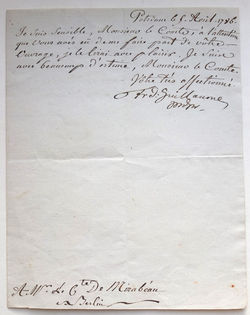 Potsdam le 5. Avril. 1786.
Je suis sensible, Monsieur le Comte, à l'attention
que vous avés eu de me faire part de vôtre
Ouvrage, je le lirai avec plaisir. Je suis
avec beaucoup d'estime, Monsieur le Comte.
Vôtre très affectionné
Fréd: Guillaume
A Mr. Le Cte De Mirabeau
a Berlin